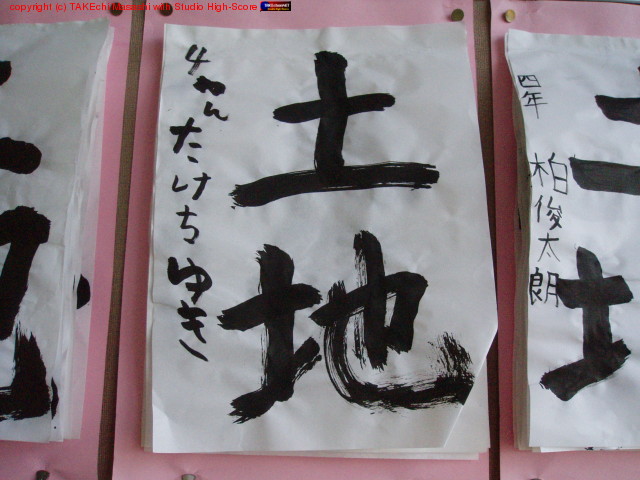 copyright (c) TAKEchi Masami with Studio High-Score
土地
4ねん たけちゆき
四年 柏俊太朗